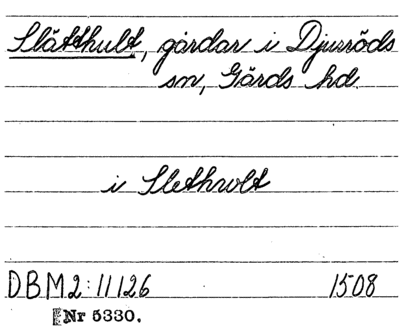 Slätthult, gårdar i Djurröds
sn, Gärds hd.
i Slethwolt
DBM2:11126 1508
Nr 5330.